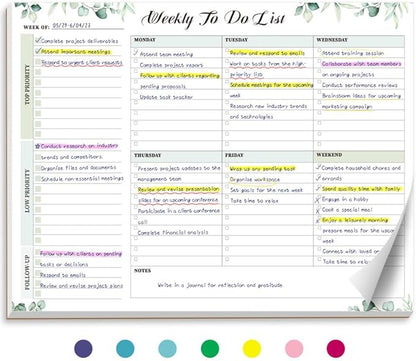 Weekly To Do List
WEEK OF: 05/29-6/04/23
TOP PRIORITY
Complete project deliverables
Attend important meetings
Respond to urgent client requests
LOW PRIORITY
Conduct research on industry
trends and competitors.
Organize files and documents
Schedule non-essential meetings
FOLLOW UP
Follow up with clients on pending
tasks or decisions
Respond to emails
Review and revise project plans
MONDAY
Attend team meeting
Complete project report
Follow up with clients regarding
pending proposals
Update task tracker
TUESDAY
Review and respond to emails
Work on tasks from the high-
priority list
Schedule meetings for the upcoming
week
Research new industry trends
and technologies
WEDNESDAY
Attend training session
Collaborate with team members
on ongoing projects
Conduct performance reviews
Brainstorm ideas for upcoming
marketing campaign
THURSDAY
Present project updates to the
management team
Review and revise presentation
slides for an upcoming conference
Participate in a client conference
call
Complete financial analysis
FRIDAY
Wrap up any pending task
Organize workspace
Set goals for the next week
Take time to relax
WEEKEND
Complete household chores and
errands
Spend quality time with family
Engage in a hobby
Cook a special meal
Enjoy a leisurely morning
prepare meals for the upcoming
week
Connect with loved on
Take time to relax
NOTES
Write in a journal for reflection and gratitude.